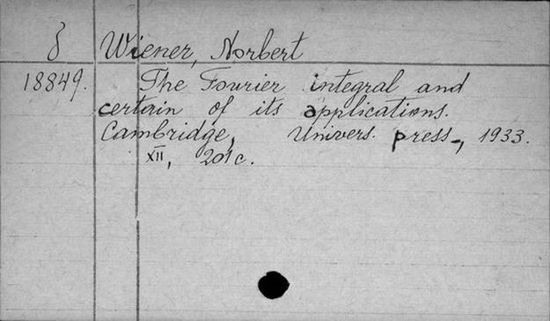 Wiener, Norbert
18849. The Fourier integral and
certain of its applications.
Cambridge, Univers. press, 1933.
XII, 201c.